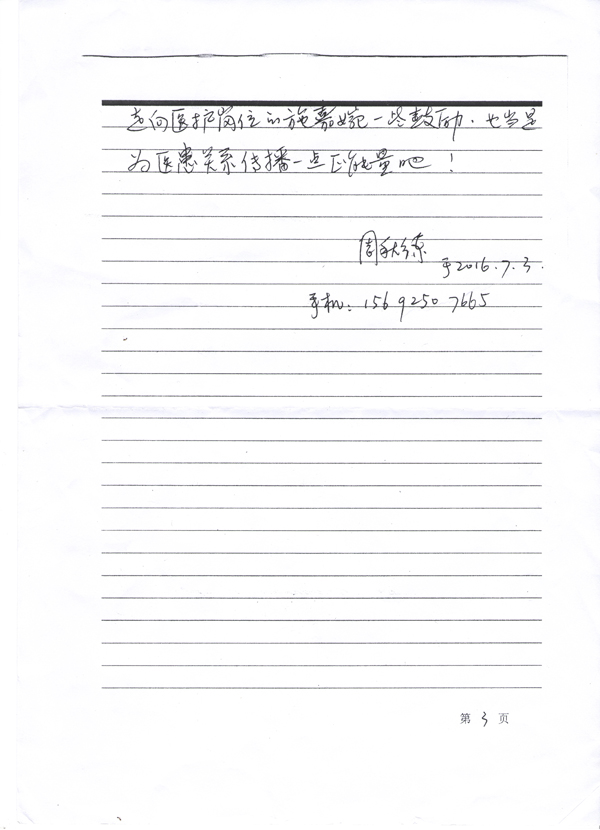 走向医护岗位的施嘉婉一些鼓励，也当是
为医患关系传播一点正能量吧！
周秋
于2016.7.3.
手机：156 9250 7665
第3页